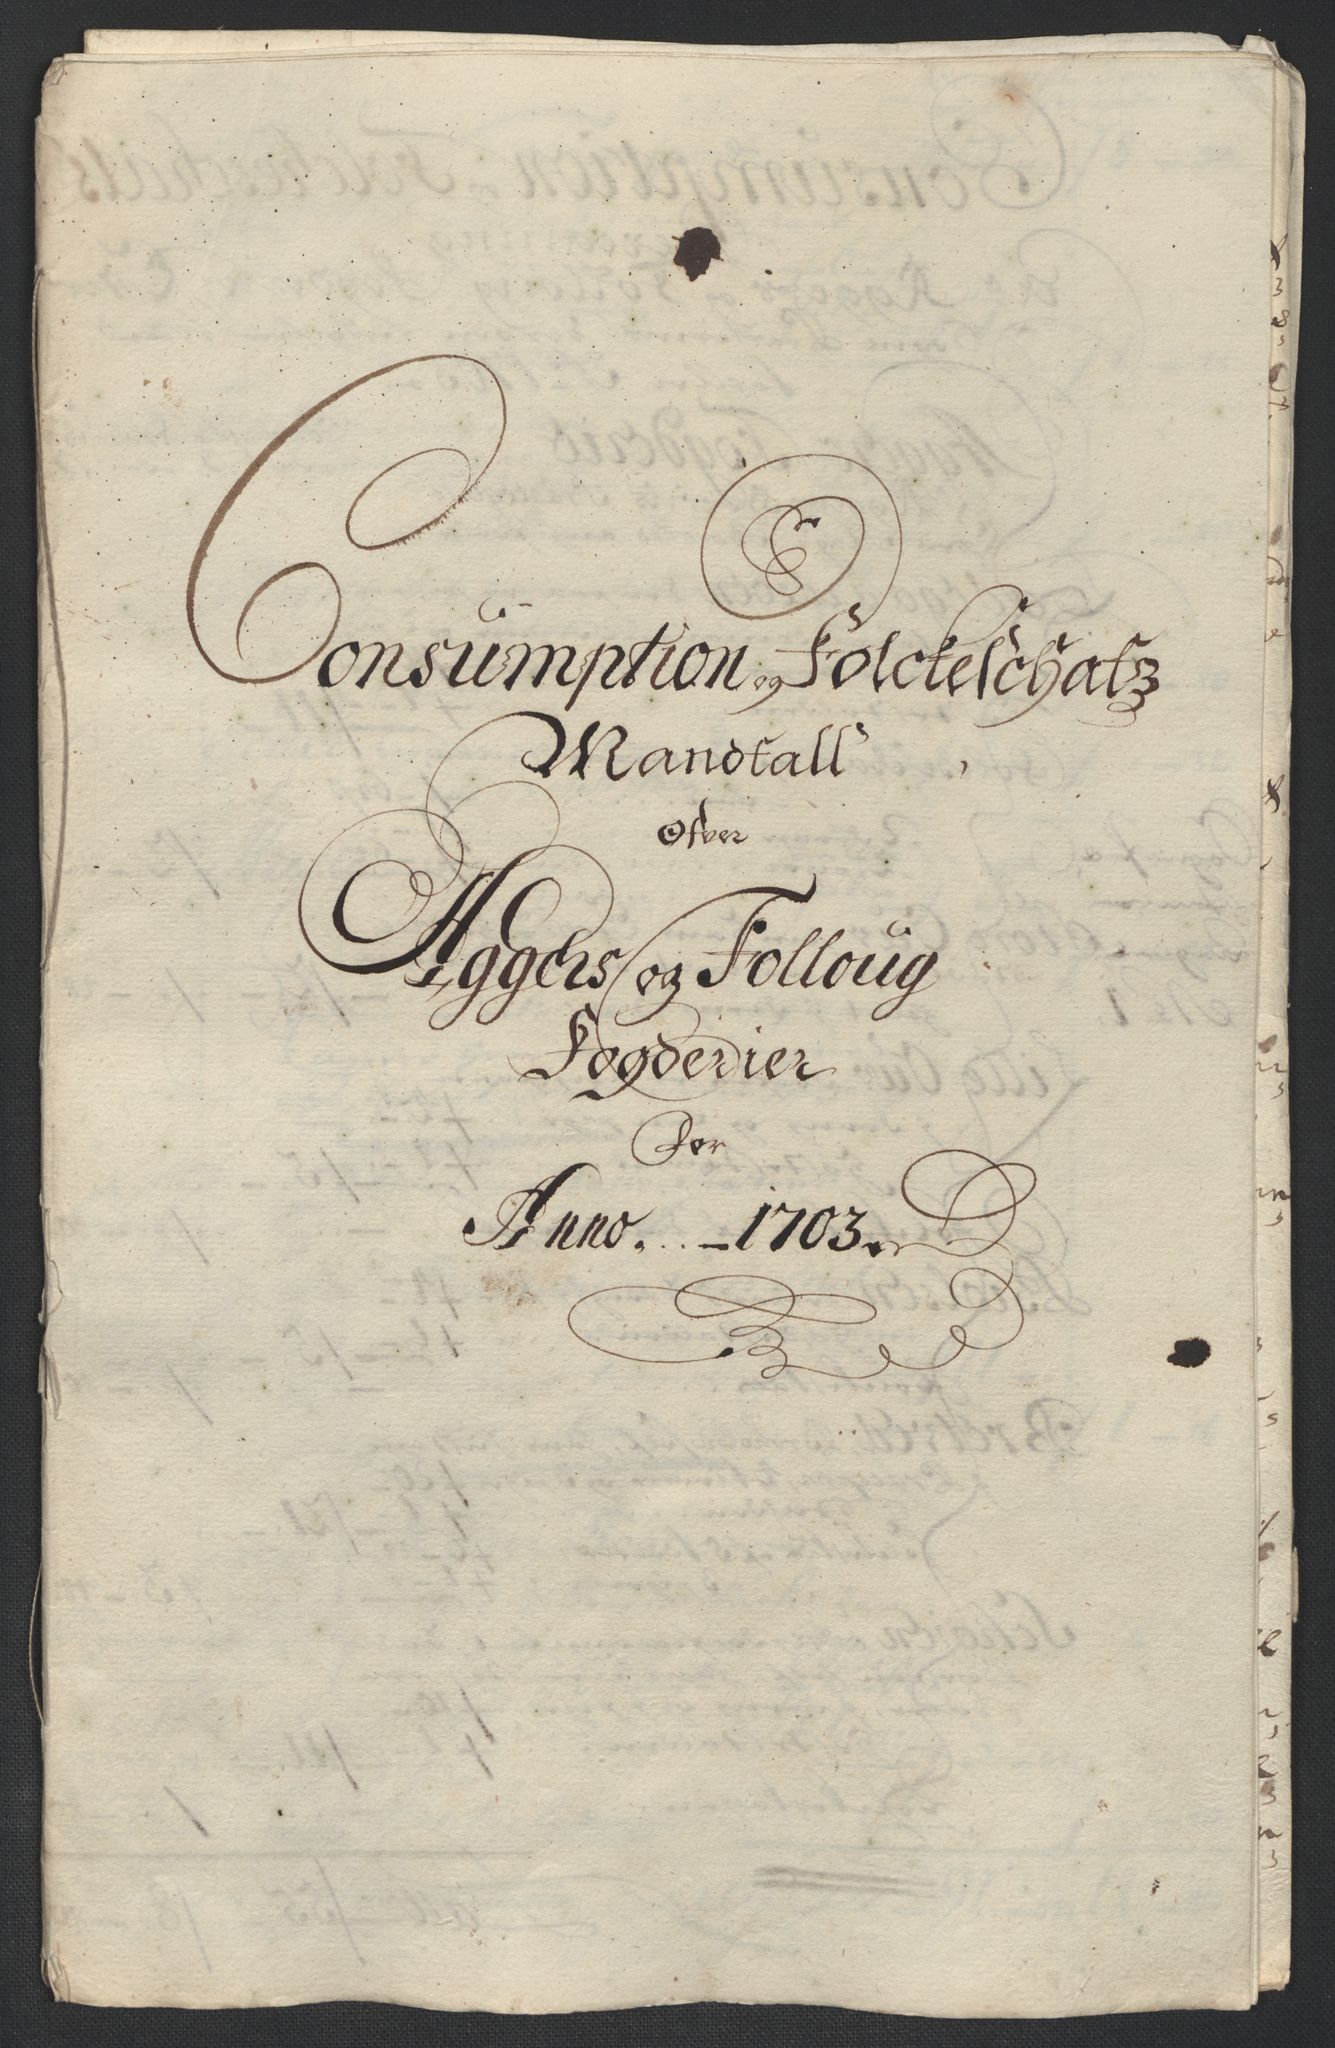 Consumption og Folckeschatz
Mandtall
Ofver
Aggers og Folloug
Fogderier
For
Anno 1703